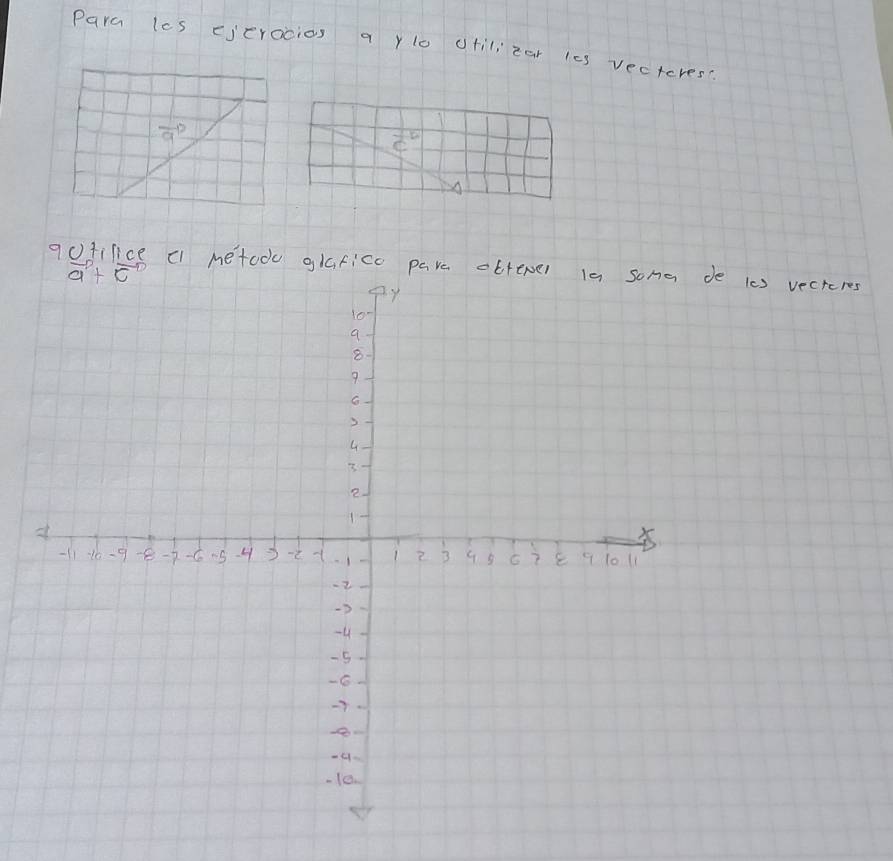 Para los ejercicios 9 y 10 utilizar los vectores:
a
c
9 Utilice el método gráfico para obtener la suma de los vectores
a + c
y
10
9
8
7
6
5
4
3
2
1
x
-11 -10 -9 -8 -7 -6 -5 -4 -3 -2 -1 1 2 3 4 5 6 7 8 9 10 11
-1
-2
-3
-4
-5
-6
-7
-8
-9
-10